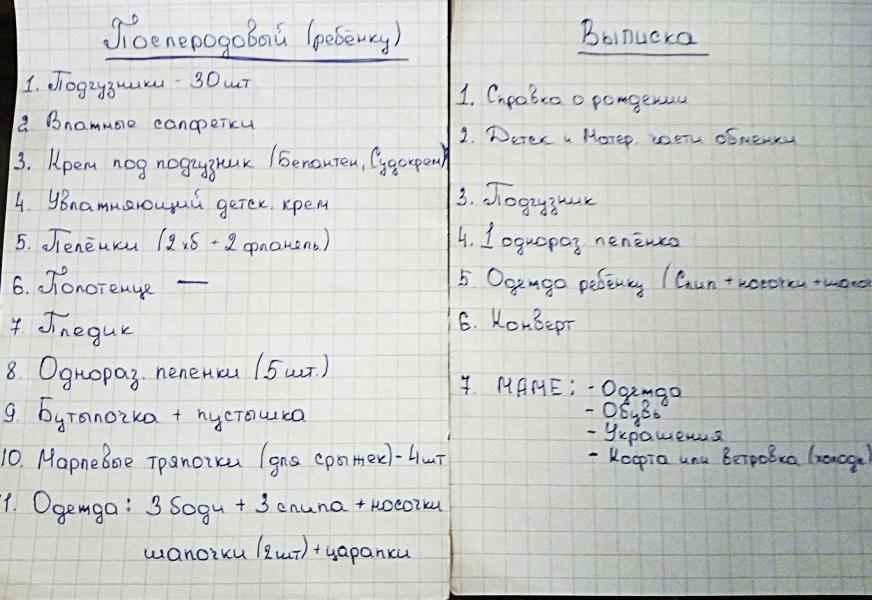 Послеродовый (ребёнку)
1. Подгузники - 30 шт
2. Влажные салфетки
3. Крем под подгузник (Бепантен, Судокрем)
4. Увлажняющий детск. крем
5. Пелёнки (2 хб + 2 фланель)
6. Полотенце —
7. Пледик
8. Однораз. пеленки (5 шт.)
9. Бутылочка + пустышка
10. Марлевые тряпочки (для срыжек) - 4 шт
1. Одежда: 3 боди + 3 слипа + носочки
шапочки (2 шт) + царапки
Выписка
1. Справка о рождении
2. Детск и Матер. части обменки
3. Подгузник
4. 1 однораз. пелёнка
5. Одежда ребёнку (Слип + носочки + шапо
6. Конверт
7. МАМЕ: - Одежда
- Обувь
- Украшения
- Кофта или ветровка